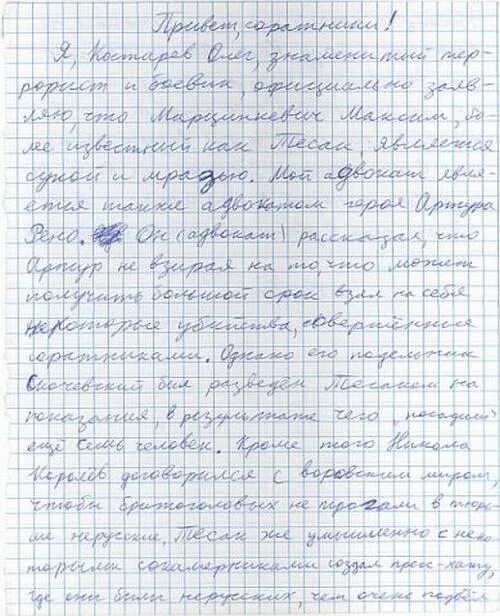 Привет, соратники!
Я, Костарев Олег, знаменитый тер-
рорист и боевик, официально заяв-
ляю, что Марцинкевич Максим, бо-
лее известный как Тесак, является
сукой и мразью. Мой адвокат явля-
ется также адвокатом героя Артура
Рено. Он (адвокат) рассказал, что
Артур не взирая на то, что может
получить большой срок взял на себя
некоторые убийства, совершённые
соратниками. Однако его подельник
Скачевский был разведён Тесаком на
показания, в результате чего "посадили"
ещё семь человек. Кроме того Никола
Королёв договорился с воровским миром,
чтобы бритоголовых не трогали в тюрь-
ме нерусские. Тесак же умышленно с неко-
торыми сокамерниками создал пресс-хату,
где они били нерусских, чем очень подвёл